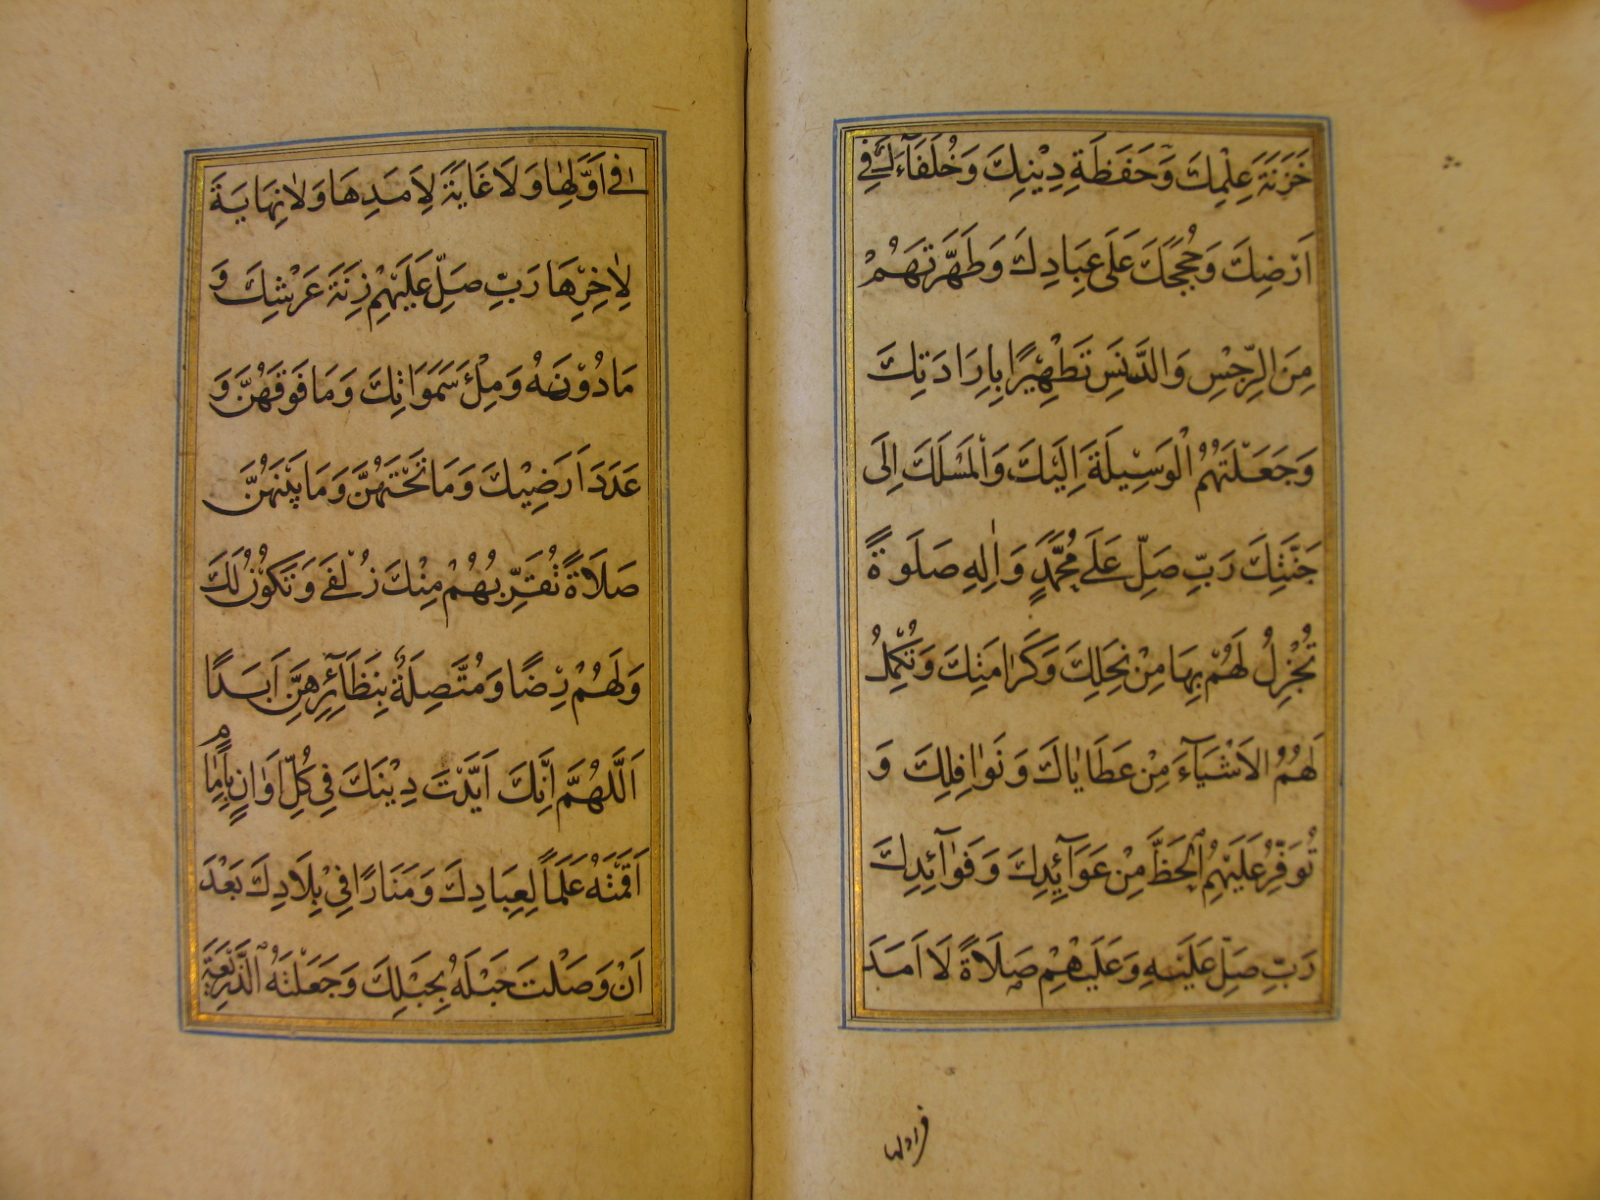 خَزَنَةَ عِلْمِكَ وَحَفَظَةِ دِيْنِكَ وَخُلَفَآءَكَ فِي
اَرْضِكَ وَحُجَجَكَ عَلَى عِبَادِكَ وَطَهَّرْتَهُمْ
مِنَ الرِّجْسِ وَالدَّنَسِ تَطْهِيْرًا بِاِرَادَتِكَ
وَجَعَلْتَهُمُ الْوَسِيْلَةَ اِلَيْكَ وَالْمَسْلَكَ اِلَى
جَنَّتِكَ رَبِّ صَلِّ عَلَى مُحَمَّدٍ وَاٰلِهِ صَلَوةً
تُجْزِلُ لَهُمْ بِهَا مِنْ نِحَلِكَ وَكَرَامَتِكَ وَتُكْمِلُ
لَهُمُ الاَشْيَآءَ مِنْ عَطَايَاكَ وَنَوَافِلِكَ وَ
تُوَفِّرُ عَلَيْهِمُ الْحَظَّ مِنْ عَوَآئِدِكَ وَفَوَآئِدِكَ
رَبِّ صَلِّ عَلَيْهِ وَعَلَيْهِمْ صَلَاةً لَا اَمَدَ
فِي اَوَّلِهَا وَلَا غَايَةَ لِاَمَدِهَا وَلَا نِهَايَةَ
لِاٰخِرِهَا رَبِّ صَلِّ عَلَيْهِمْ زِنَةَ عَرْشِكَ وَ
مَا دُوْنَهُ وَمِلْءَ سَمَوَاتِكَ وَمَا فَوْقَهُنَّ وَ
عَدَدَ اَرَضِيْكَ وَمَا تَحْتَهُنَّ وَمَا بَيْنَهُنَّ
صَلَاةً تُقَرِّبُهُمْ مِنْكَ زُلْفَى وَتَكُوْنُ لَكَ
وَلَهُمْ رِضًا وَمُتَّصِلَةٌ بِنَظَآئِرِهِنَّ اَبَدًا
اَللَّهُمَّ اِنَّكَ اَيَّدْتَ دِيْنَكَ فِي كُلِّ اَوَانٍ بِاِمَامٍ
اَقَمْتَهُ عَلَمًا لِعِبَادِكَ وَمَنَارًا فِيْ بِلَادِكَ بَعْدَ
اَنْ وَصَلْتَ حَبْلَهُ بِحَبْلِكَ وَجَعَلْتَهُ الذَّرِيْعَةَ